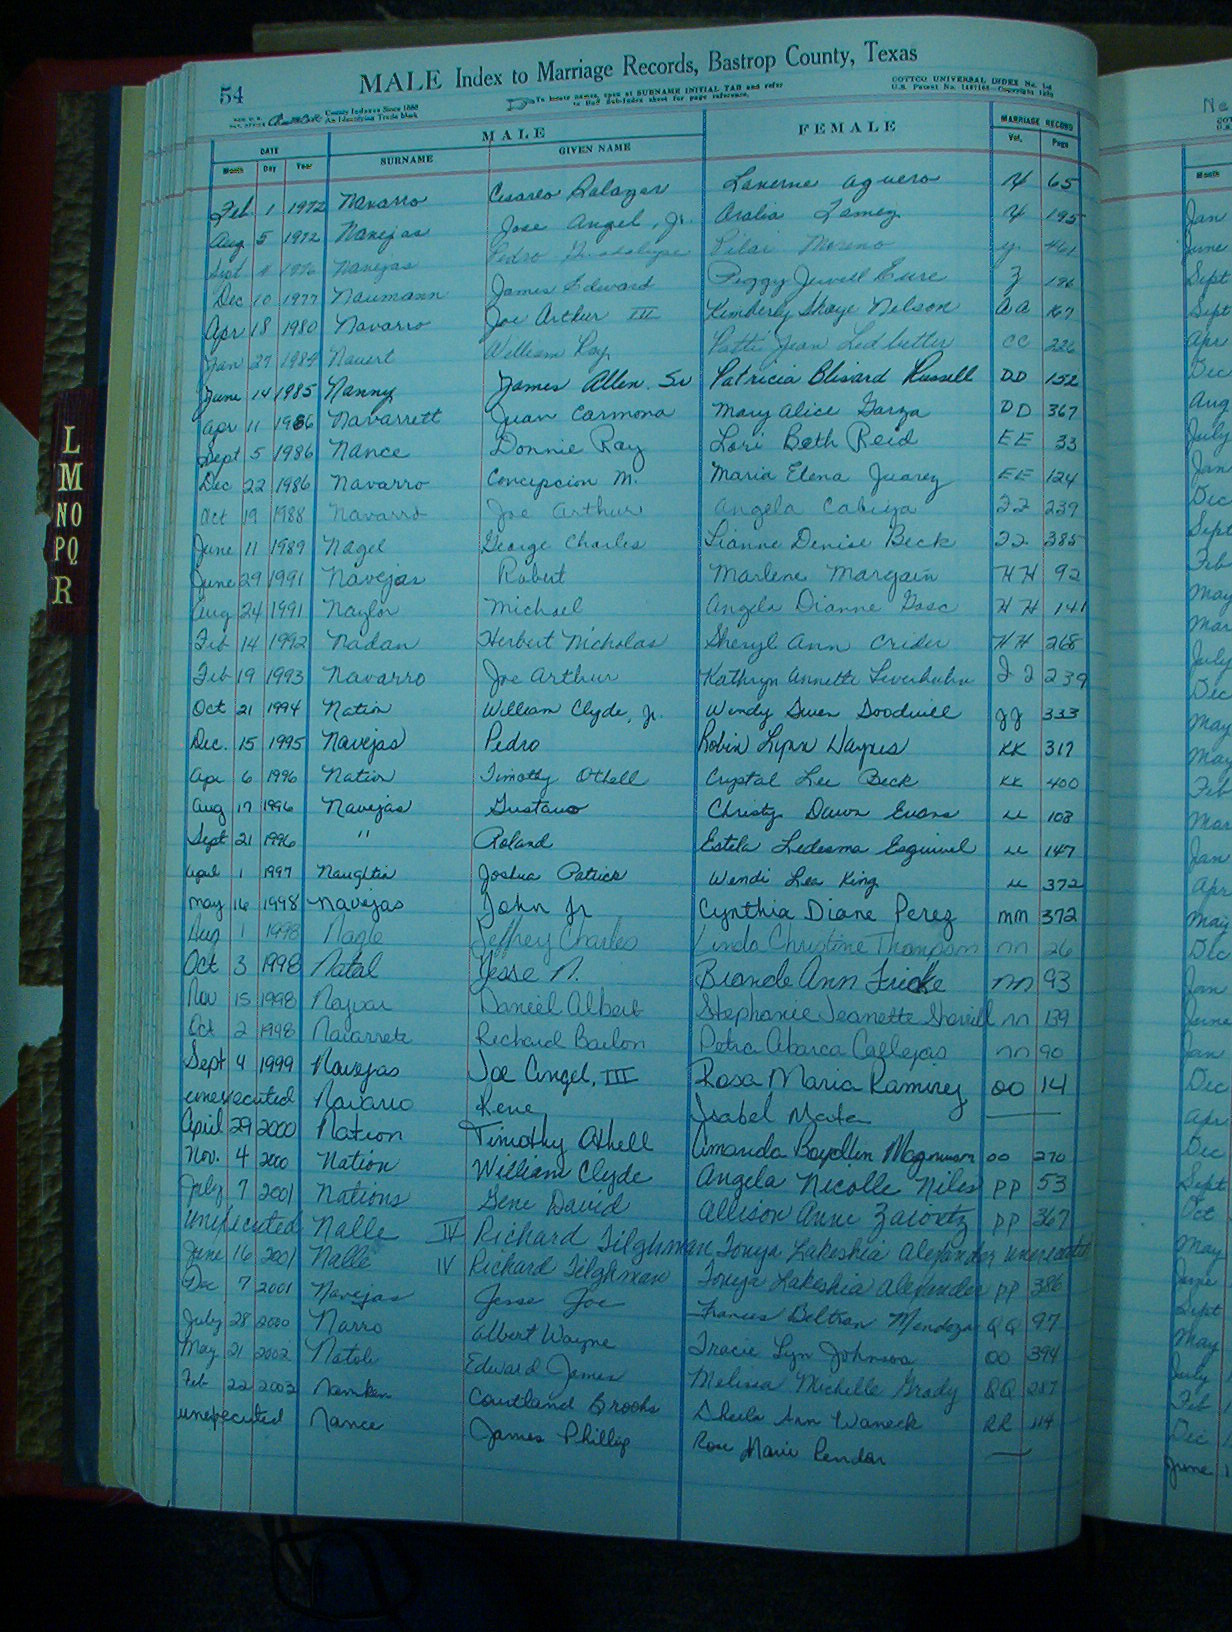 54 MALE Index to Marriage Records, Bastrop County, Texas
County Indexes Since 1888
An Identifying Trade Mark
To locate names, open at SURNAME INITIAL TAB and refer
COTTCO UNIVERSAL INDEX
DATE MALE FEMALE MARRIAGE RECORD
Month Day Year SURNAME GIVEN NAME Vol. Page
Feb. 1 1972 Navarro Cesareo Salazar Laverne Aguero Y 65
Aug 5 1972 Navejas Jose Angel, Jr. Oralia Tamez Y 195
Sept 1976 Navejas Pedro Guadalupe Pilar Moreno y 461
Dec 10 1977 Naumann James Edward Peggy Jewell Eure Z 196
Apr 18 1980 Navarro Joe Arthur III Kimberly Skaye Nelson AA 167
Jan 27 1984 Nauert William Roy Patti Jean Ledbetter CC 226
June 14 1985 Nanny James Allen Sr Patricia Blisard Russell DD 152
Apr 11 1986 Navarrett Juan Carmona Mary Alice Garza DD 367
Sept 5 1986 Nance Donnie Ray Lori Beth Reid EE 33
Dec 22 1986 Navarro Concepcion M. Maria Elena Juarez EE 124
Oct 19 1988 Navarro Joe Arthur Angela 239
June 11 1989 Nagel George Charles Lianne Denise Beck 385
June 29 1991 Navejas Robert Marlene Margain HH 92
Aug 24 1991 Naylor Michael Angela Dianne HH 141
Feb 14 1992 Nadan Herbert Nicholas Sheryl Ann Crider HH 268
Feb 19 1993 Navarro Joe Arthur Kathryn Annette 239
Oct 21 1994 Nation William Clyde, Jr. Wendy Gwen Goodwill JJ 333
Dec. 15 1995 Navejas Pedro Robin Lynn Haynes KK 317
Apr 6 1996 Nation Timothy Othell Crystal Lee Beck KK 400
Aug 17 1996 Navejas Gustavo Christy Dawn Evans LL 103
Sept 21 1996 " Roland Estela Ledesma Esquivel LL 147
April 1 1997 Naughtin Joshua Patrick Wendi Lea King LL 372
May 16 1998 Navejas John Jr Cynthia Diane Perez MM 372
Aug 1 1998 Nagle Jeffrey Charles Linda Christine Thompson nn 26
Oct 3 1998 Natal Jesse N. Ann Fricke nn 93
Nov 15 1998 Najvar Daniel Albert Stephanie Jeanette Sherrill nn 139
Oct 2 1998 Navarrete Richard Bailon Petra Abarca Callejas nn 90
Sept 4 1999 Navejas Joe Angel, III Rosa Maria Ramirez OO 14
unexecuted Navarro Rene Isabel Mata —
April 29 2000 Nation Timothy Othell Amanda Magnuson OO 270
Nov. 4 2000 Nation William Clyde Angela Nicolle Niles PP 53
July 7 2001 Nations Gene David Allison Anne PP 367
Unexecuted Nalle IV Richard Tilghman Tonya Lakeshia Alexander unexecuted
June 16 2001 Nalle IV Richard Tilghman Tonya Lakeshia Alexander PP 386
Dec 7 2001 Navejas Jesse Joe Frances Beltran Mendoza QQ 97
July 28 2000 Narro Albert Wayne Tracie Lyn Johnson OO 394
May 21 2002 Natoli Edward James Melissa Michelle Grady QQ 287
Feb 22 2003 Courtland Brooks Sheila Ann Waneck RR 114
unexecuted Nance James Phillip Rose Marie —
L
M
NO
PQ
R
Month
Jan
June
Sept
Sept
Apr
Dec
Aug
July
Jan
Dec
Sept
Feb
May
Mar
July
Dec
May
May
Feb
Mar
Jan
Apr
May
Dec
Jan
June
Jan
Dec
Apr
Dec
Sept
Oct
May
June
Sept
May
July
Feb
Dec
June